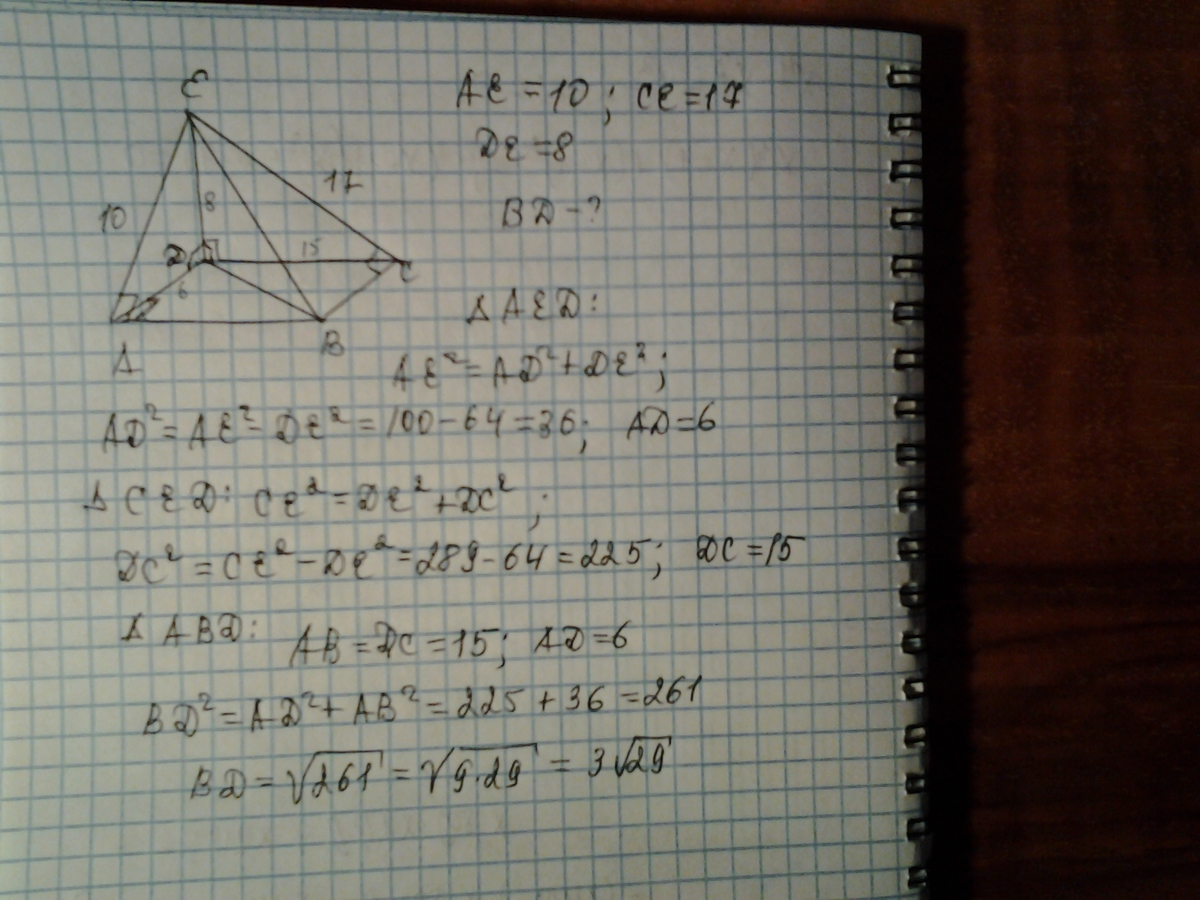 E
AE = 10 ; CE = 17
DE = 8
BD - ?
10
8
17
D
15
C
6
A
B
Δ AED:
AE² = AD² + DE² ;
AD² = AE² - DE² = 100 - 64 = 36; AD = 6
Δ CED: CE² = DE² + DC² ;
DC² = CE² - DE² = 289 - 64 = 225; DC = 15
Δ ABD: AB = DC = 15; AD = 6
BD² = AD² + AB² = 225 + 36 = 261
BD = √261 = √9·29 = 3√29